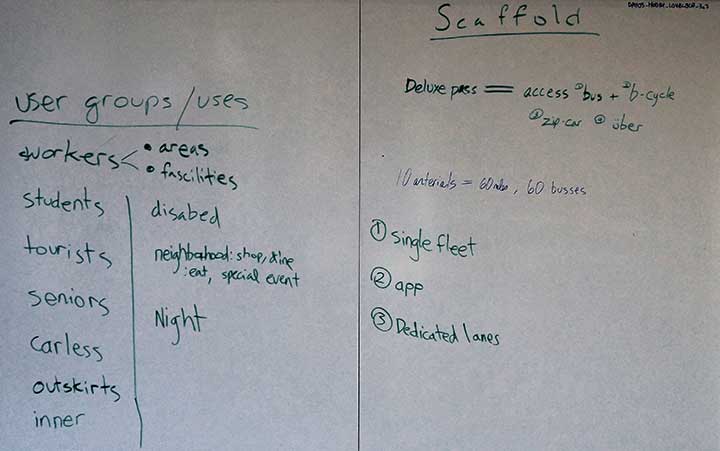 user groups/uses
workers < • areas
• fascilities
students
tourists
seniors
Carless
outskirts
inner
disabed
neighborhood: shop, dine
:eat, special event
Night
Scaffold
Deluxe pass = access ① bus + ② b-cycle
③ zip-car ④ über
10 arterials = 60 , 60 busses
① single fleet
② app
③ Dedicated lanes